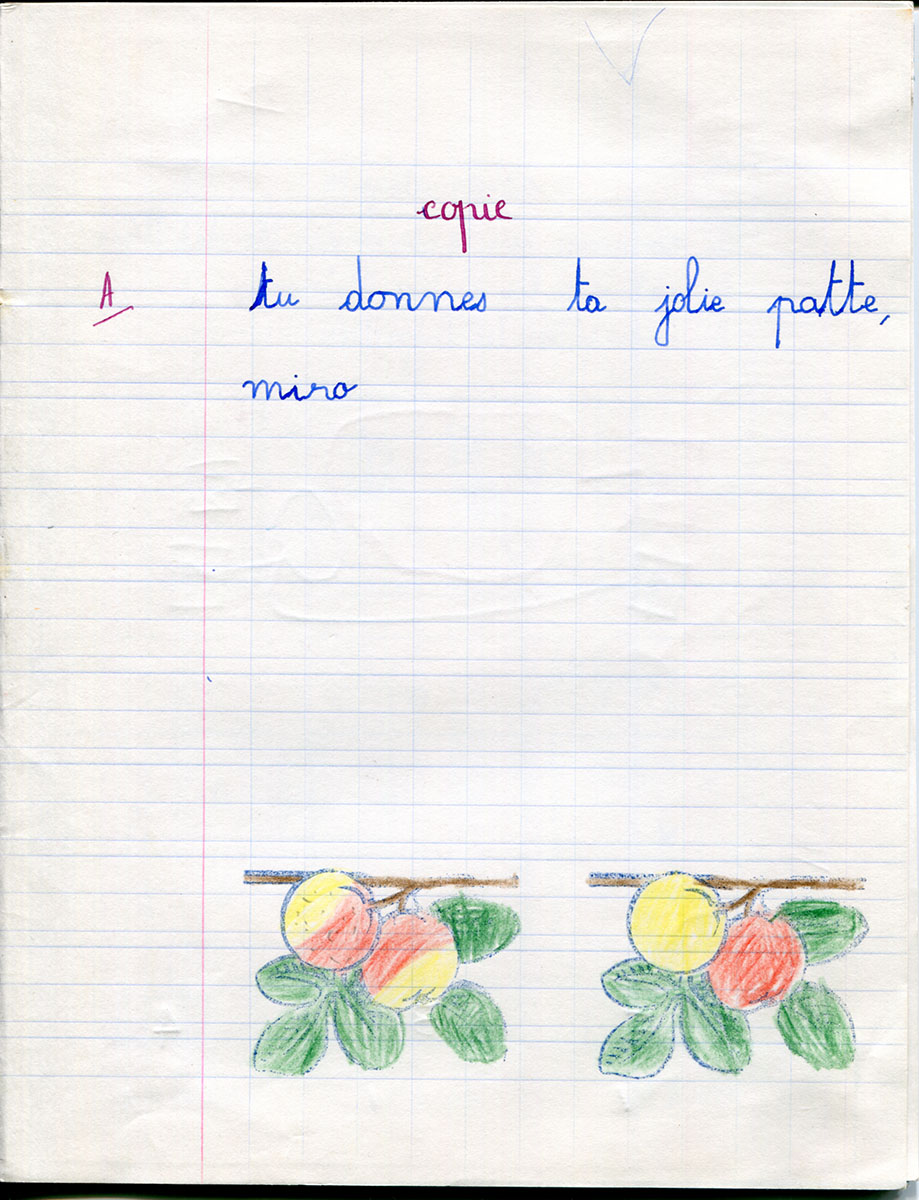 copie
A tu donnes ta jolie patte,
miro